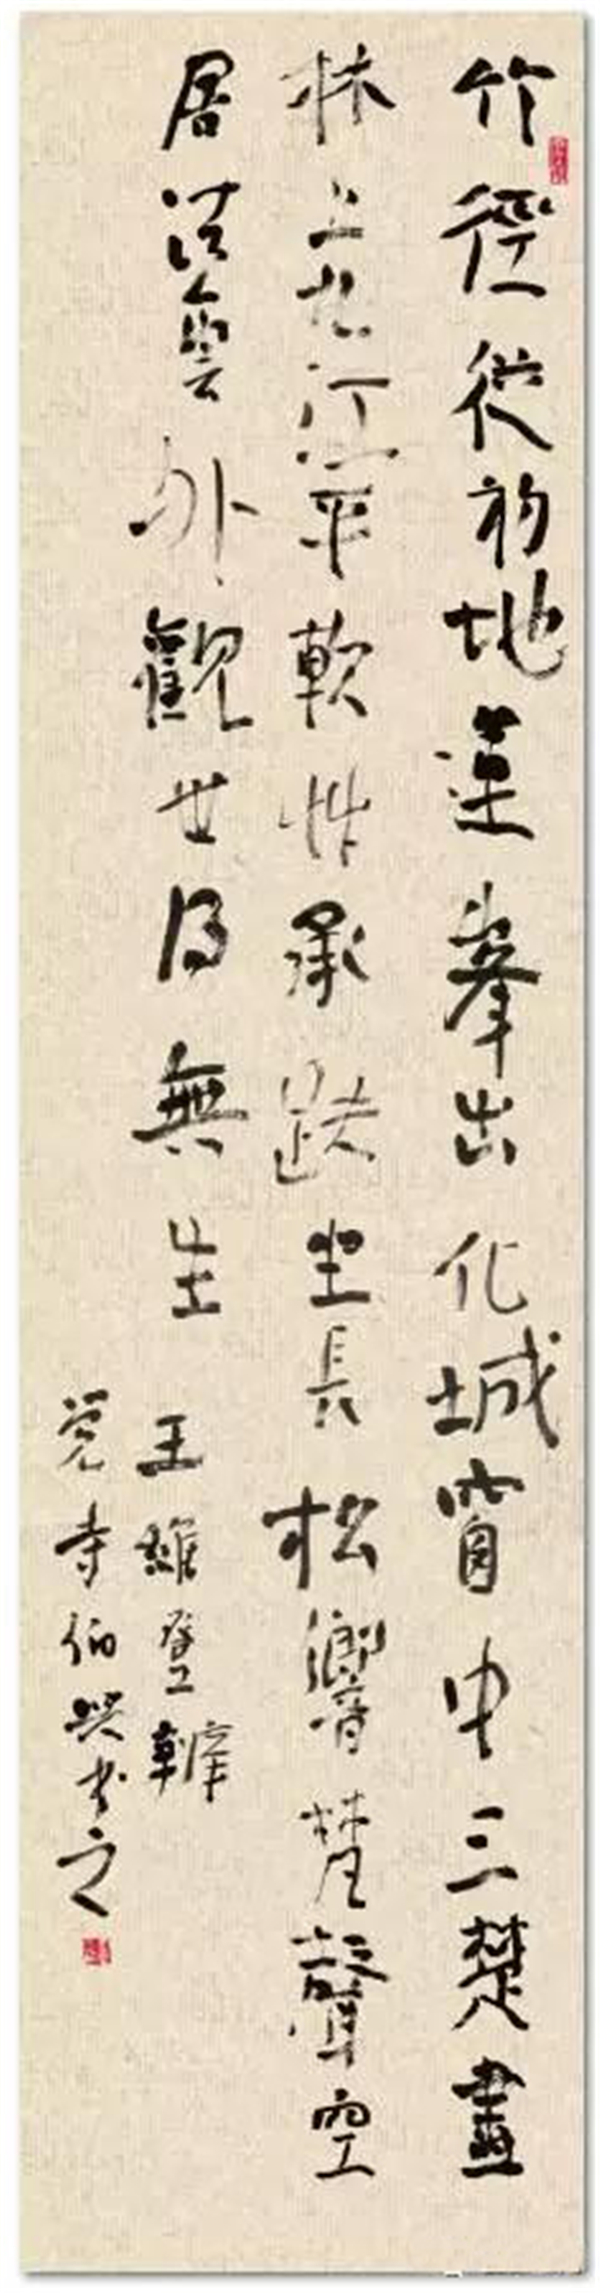 竹徑從初地蓮峯出化城窗中三楚盡
林上九江平軟艸承趺坐長松響梵聲空
居法雲外觀世得無生 王維登辨
覺寺伯書之